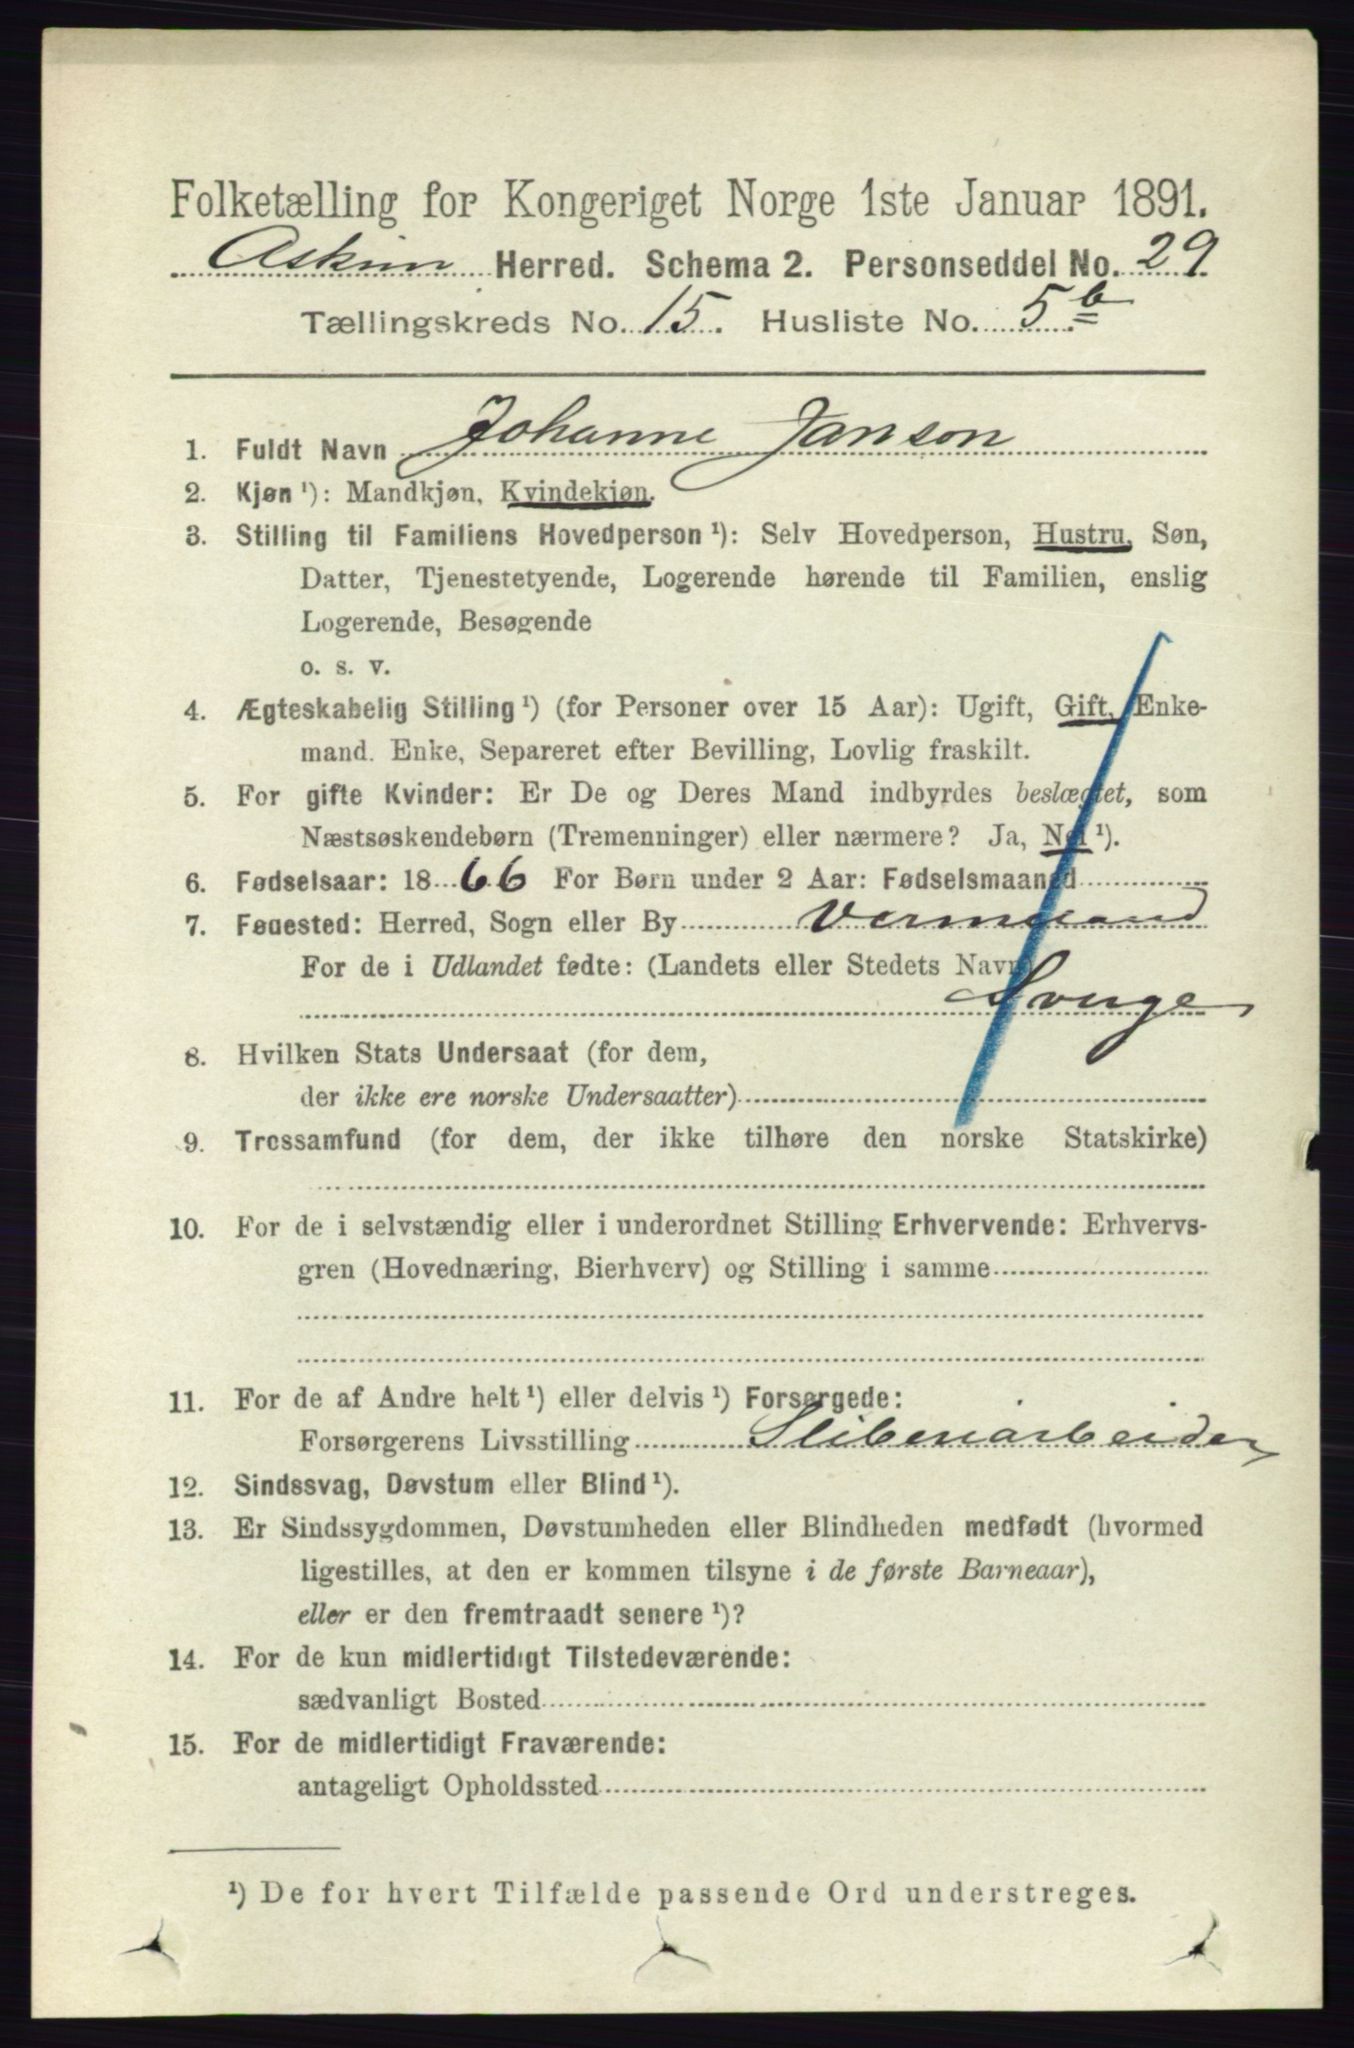 Folketælling for Kongeriget Norge 1ste Januar 1891.
Askim Herred. Schema 2. Personseddel No. 29.
Tællingskreds No. 15. Husliste No. 5b
1. Fuldt Navn Johanne Janson
2. Kjøn ¹): Mandkjøn, Kvindekjøn.
3. Stilling til Familiens Hovedperson ¹): Selv Hovedperson, Hustru, Søn,
Datter, Tjenestetyende, Logerende hørende til Familien, enslig
Logerende, Besøgende
o. s. v.
4. Ægteskabelig Stilling ¹) (for Personer over 15 Aar): Ugift, Gift, Enke-
mand. Enke, Separeret efter Bevilling, Lovlig fraskilt.
5. For gifte Kvinder: Er De og Deres Mand indbyrdes beslægtet, som
Næstsøskendebørn (Tremenninger) eller nærmere? Ja, Nei ¹).
6. Fødselsaar: 1866 For Børn under 2 Aar: Fødselsmaaned
7. Føuested: Herred, Sogn eller By Vermeland
For de i Udlandet fødte: (Landets eller Stedets Navn)
Sverge
8. Hvilken Stats Undersaat (for dem,
der ikke ere norske Undersaatter)
9. Trossamfund (for dem, der ikke tilhøre den norske Statskirke)
10. For de i selvstændig eller i underordnet Stilling Erhvervende: Erhvervs-
gren (Hovednæring, Bierhverv) og Stilling i samme
11. For de af Andre helt ¹) eller delvis ¹) Forsørgede:
Forsørgerens Livsstilling Sliberiarbeider
12. Sindssvag, Døvstum eller Blind ¹).
13. Er Sindssygdommen, Døvstumheden eller Blindheden medfødt (hvormed
ligestilles, at den er kommen tilsyne i de første Barneaar),
eller er den fremtraadt senere ¹)?
14. For de kun midlertidigt Tilstedeværende:
sædvanligt Bosted
15. For de midlertidigt Fraværende:
antageligt Opholdssted
¹) De for hvert Tilfælde passende Ord understreges.